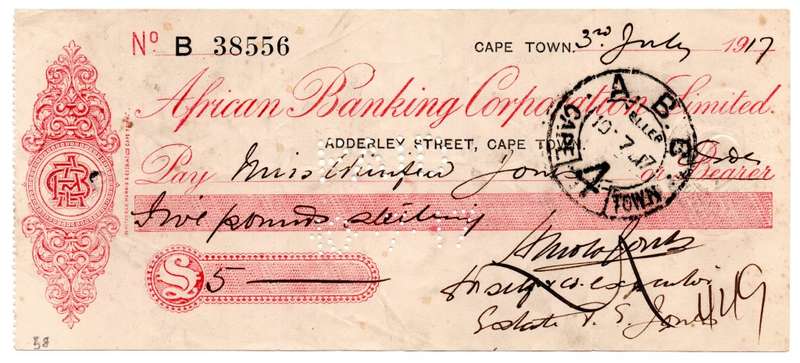 No B 38556 CAPE TOWN. 3rd July 1917
African Banking Corporation Limited.
ADDERLEY STREET, CAPE TOWN.
Pay Miss Winifred Jones or Bearer Order
Five pounds sterling
£ 5
Self & co. executor
Estate P. S. Jones
449
A B C
TELLER
10 7 17
4
CAPE TOWN
38